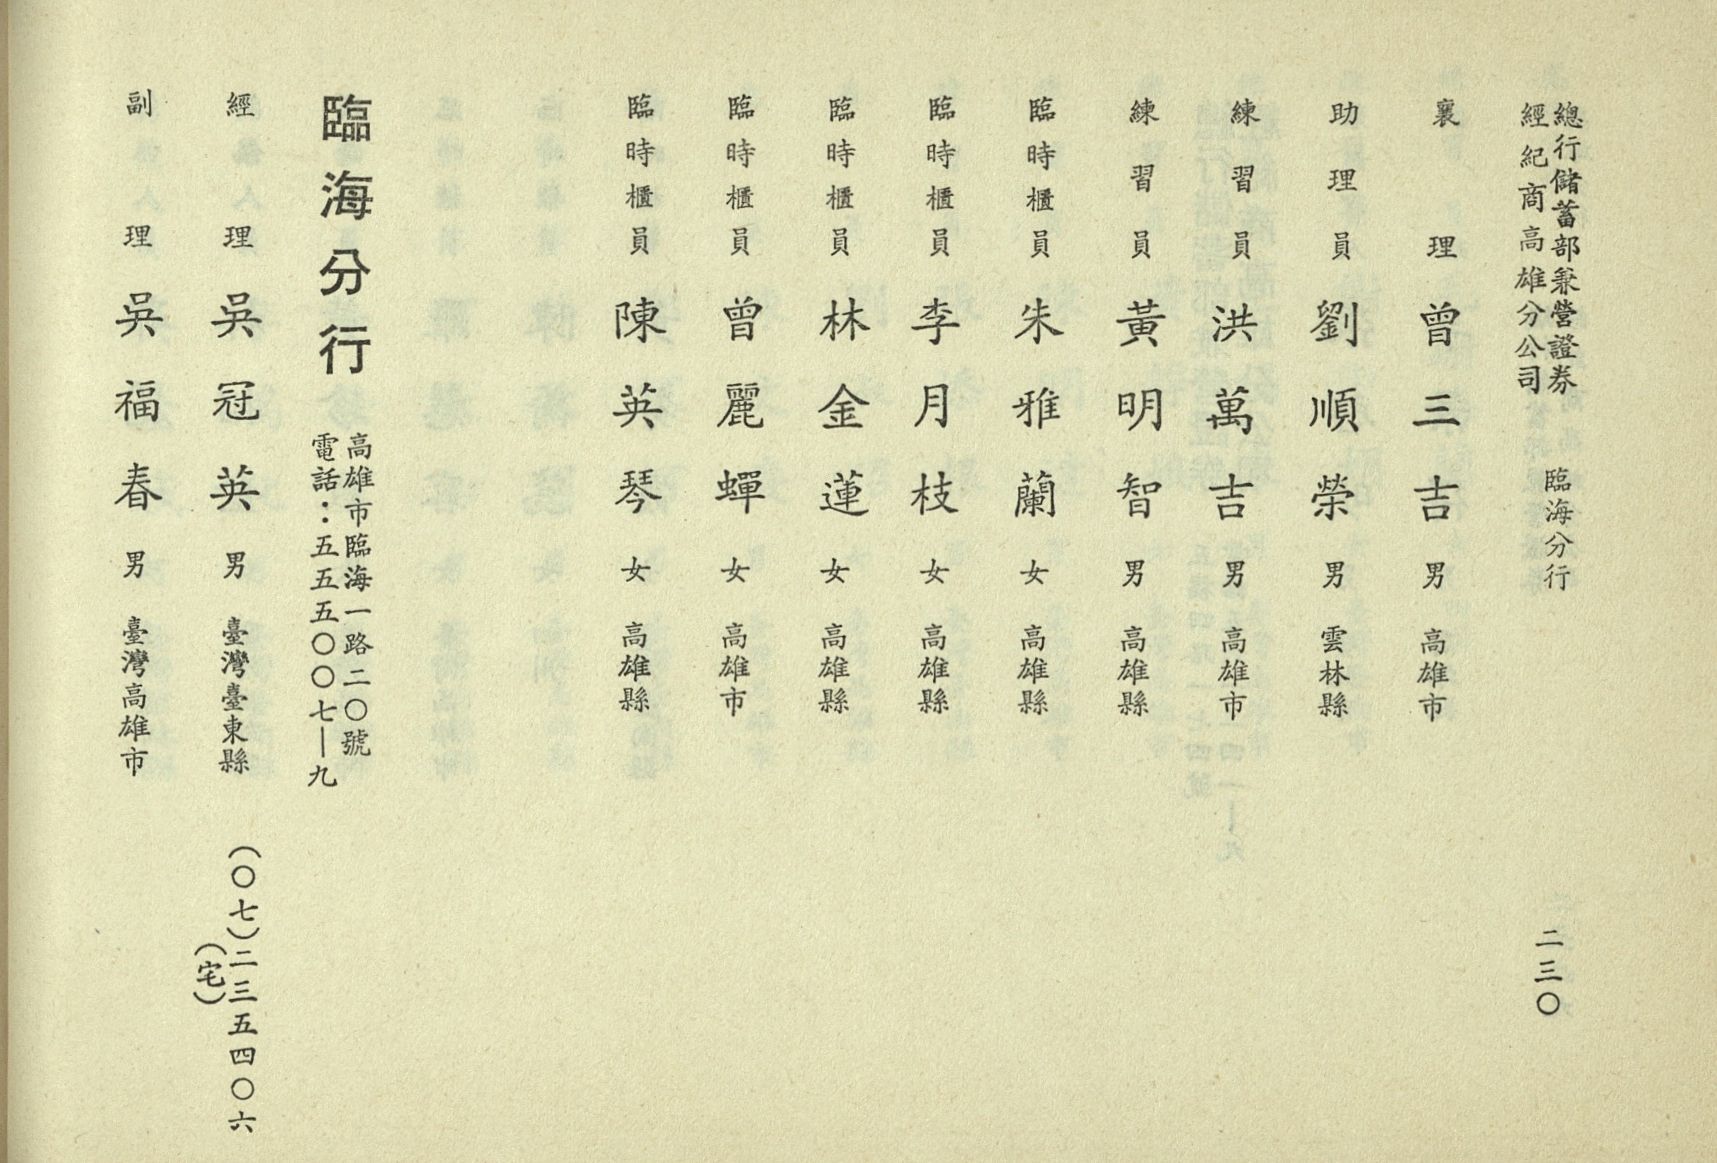 總行儲蓄部兼營證券
經紀商高雄分公司
臨海分行
二三〇
襄理 曾三吉 男 高雄市
助理員 劉順榮 男 雲林縣
練習員 洪萬吉 男 高雄市
練習員 黃明智 男 高雄縣
臨時櫃員 朱雅蘭 女 高雄縣
臨時櫃員 李月枝 女 高雄縣
臨時櫃員 林金蓮 女 高雄縣
臨時櫃員 曾麗蟬 女 高雄市
臨時櫃員 陳英琴 女 高雄縣
臨海分行
高雄市臨海一路二〇號
電話：五五五〇〇七—九
經理 吳冠英 男 臺灣臺東縣 (〇七)二三五四〇六
(宅)
副理 吳福春 男 臺灣高雄市